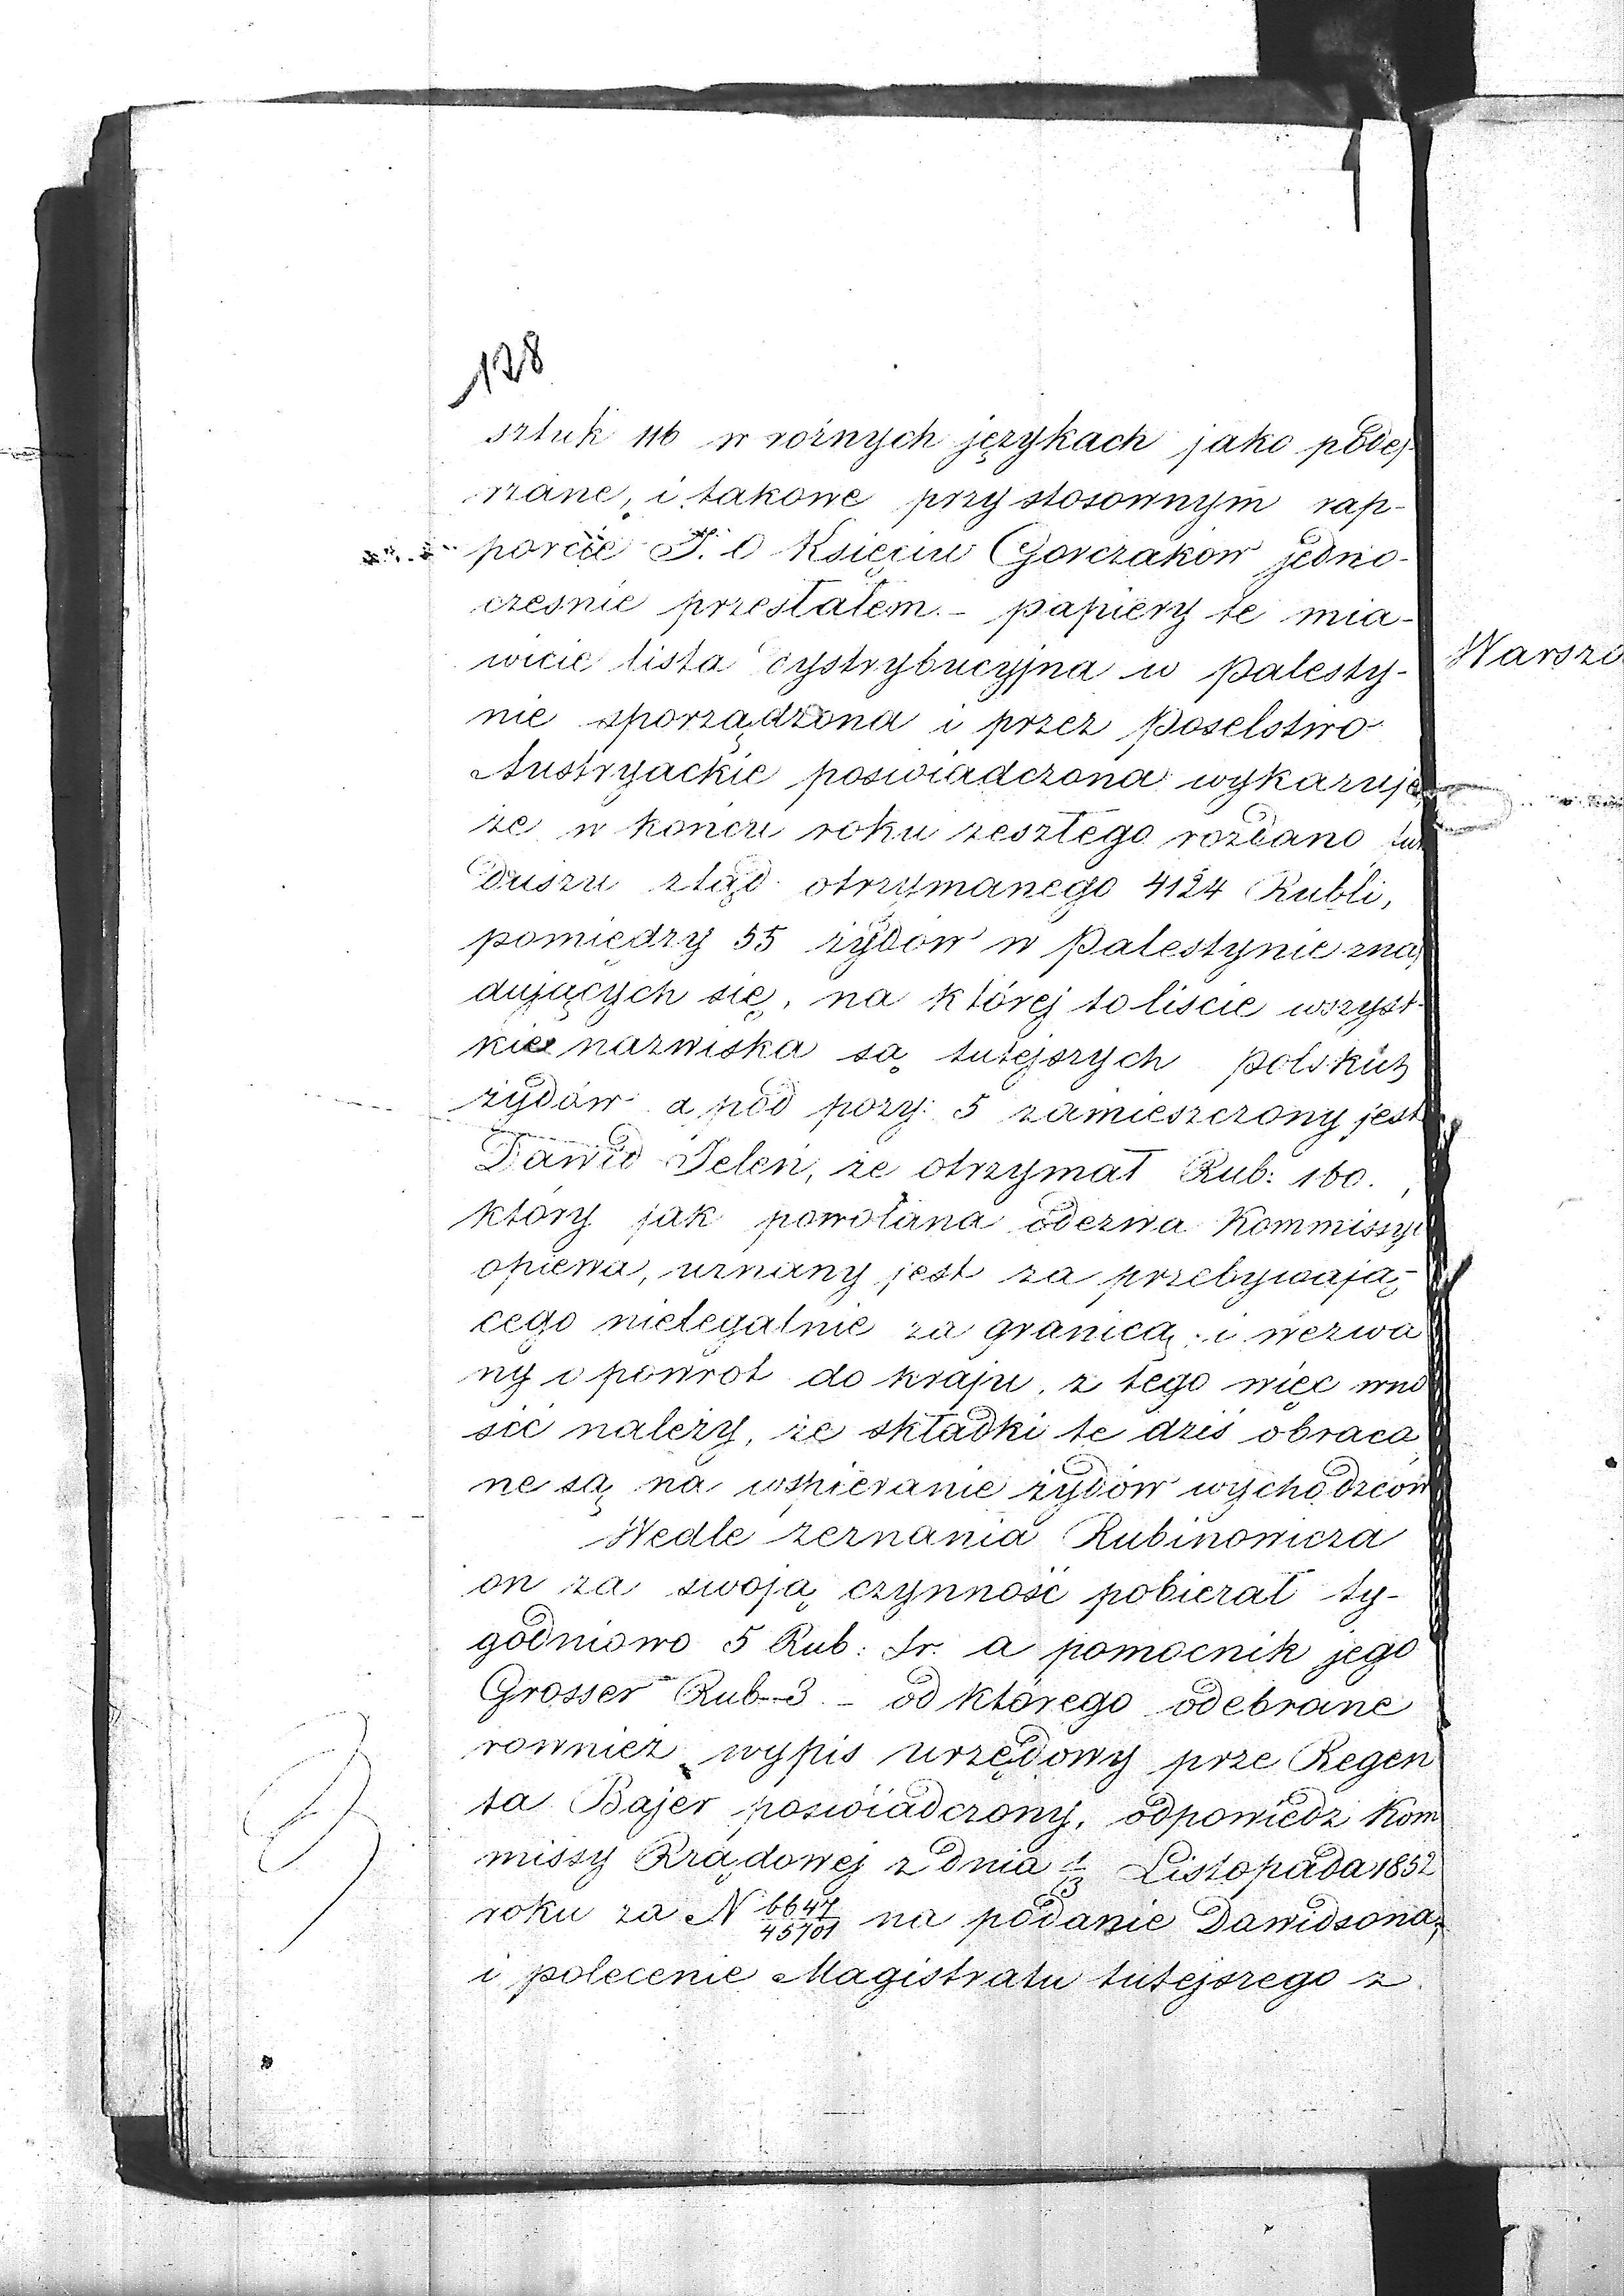 128
sztuk 116 w rożnych językach jako podej-
rzane, i takowe przy stosownym rap-
porcie J. O Księciu Gorczakow jedno-
czesnie przesłałem. – papiery te mia-
wicie lista dystrybucyjna w Palesty-
nie sporządzona i przez Poselstwo
Austryackie poswiadczona wykazuje,
że w koncu roku zeszłego rozdano fun
duszu ztąd otrzymanego 4124 Rubli,
pomiędzy 55 żydów w Palestynie znaj
dujących się, na której to liscie wszyst-
kie nazwiska są tutejszych polskich
żydów a pod pozy: 5 zamieszczony jest
Dawid Jeleń, że otrzymał Rub: 160.,
który jak powołana odezwa Kommissyi
opiewa, uznany jest za przebywają-
cego nielegalnie za granicą i wezwa
ny o powrot do kraju, z tego więc wno
sić należy, że składki te dziś obraca
ne są na wspieranie żydów wychodzców
Wedle zeznania Rubinowicza
on za swoją czynność pobierał ty-
godniowo 5 Rub: Sr. a pomocnik jego
Grosser Rub–3 – od którego odebrane
rownież wypis urzędowy prze Regen
ta Bajer poswiadczony, odpowiedz Kom
missy Rządowej z dnia 1/13 Listopada 1852
roku za N 6647/45701 na podanie Dawidsona,
i polecenie Magistratu tutejszego z
Warsza